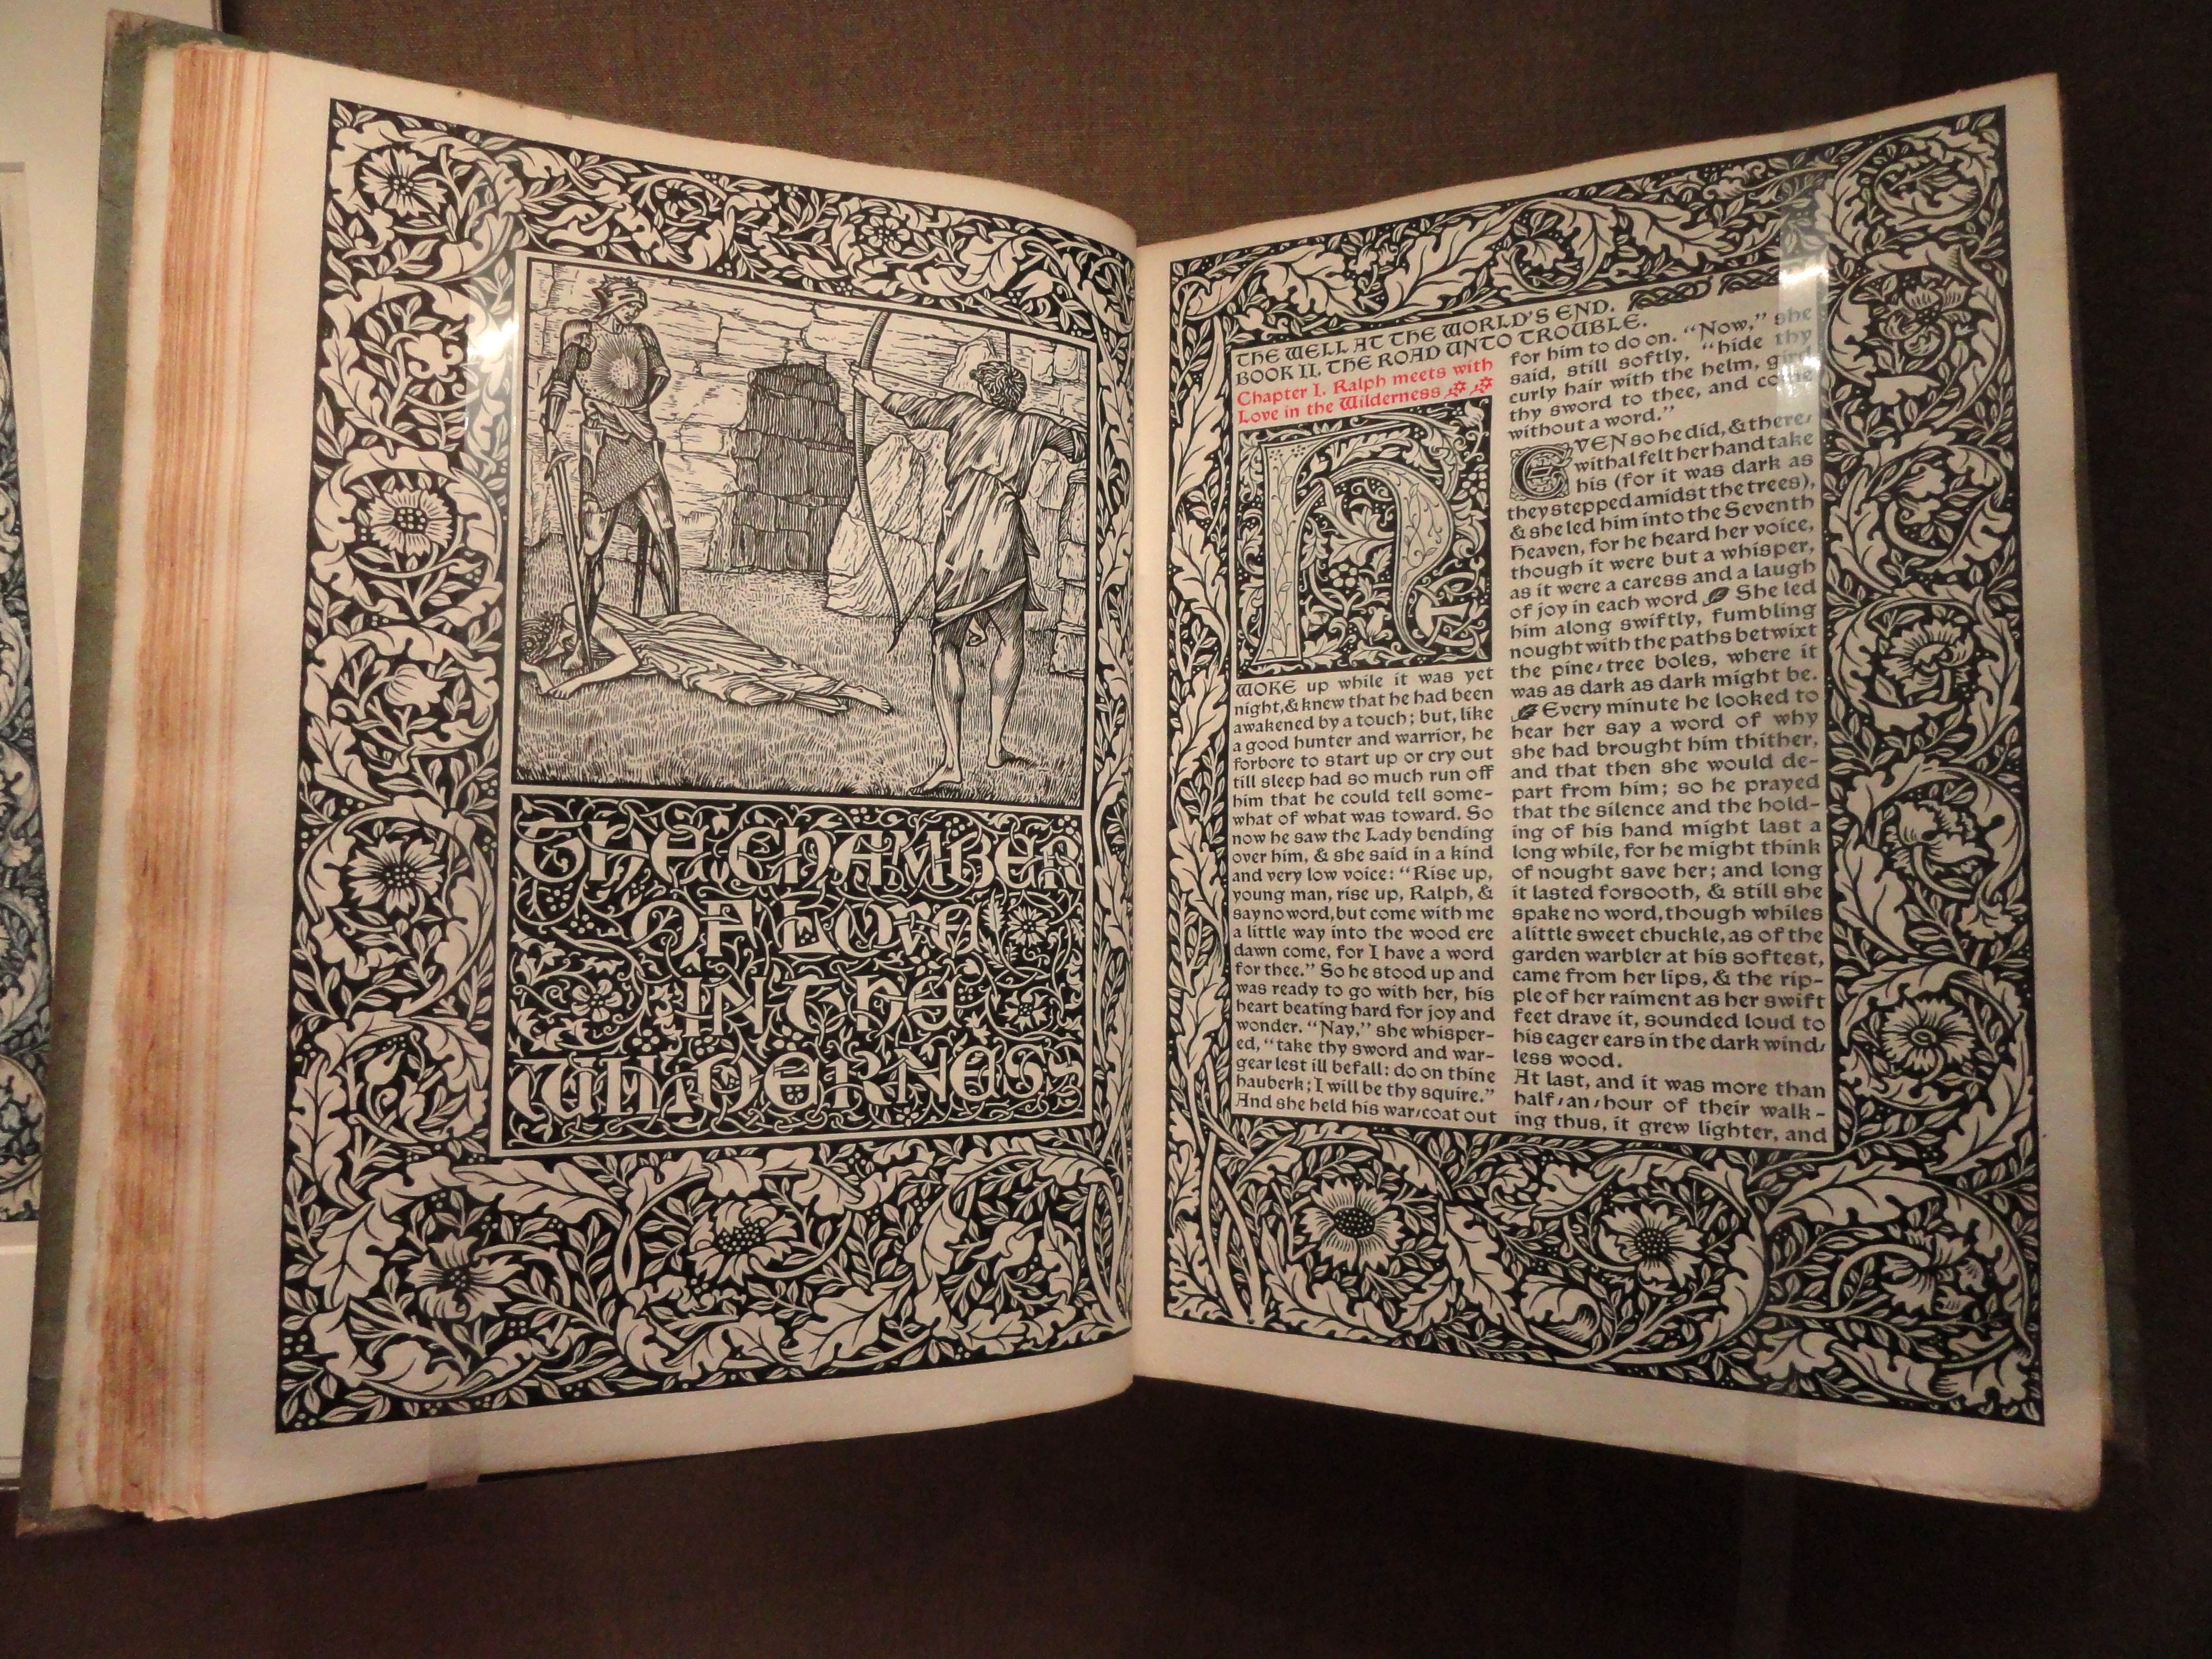 THE CHAMBER
OF LOVE
IN THE
WILDERNESS
THE WELL AT THE WORLD'S END.
BOOK II. THE ROAD UNTO TROUBLE.
Chapter I. Ralph meets with
Love in the Wilderness
HE
WOKE up while it was yet
night, & knew that he had been
awakened by a touch; but, like
a good hunter and warrior, he
forbore to start up or cry out
till sleep had so much run off
him that he could tell some-
what of what was toward. So
now he saw the Lady bending
over him, & she said in a kind
and very low voice: "Rise up,
young man, rise up, Ralph, &
say no word, but come with me
a little way into the wood ere
dawn come, for I have a word
for thee." So he stood up and
was ready to go with her, his
heart beating hard for joy and
wonder. "Nay," she whisper-
ed, "take thy sword and war-
gear lest ill befall: do on thine
hauberk; I will be thy squire."
And she held his war-coat out
for him to do on. "Now," she
said, still softly, "hide thy
curly hair with the helm, gird
thy sword to thee, and come
without a word."
EVEN so he did, & there-
withal felt her hand take
his (for it was dark as
they stepped amidst the trees),
& she led him into the Seventh
Heaven, for he heard her voice,
though it were but a whisper,
as it were a caress and a laugh
of joy in each word She led
him along swiftly, fumbling
nought with the paths betwixt
the pine-tree boles, where it
was as dark as dark might be.
Every minute he looked to
hear her say a word of why
she had brought him thither,
and that then she would de-
part from him; so he prayed
that the silence and the hold-
ing of his hand might last a
long while, for he might think
of nought save her; and long
it lasted forsooth, & still she
spake no word, though whiles
a little sweet chuckle, as of the
garden warbler at his softest,
came from her lips, & the rip-
ple of her raiment as her swift
feet drave it, sounded loud to
his eager ears in the dark wind-
less wood.
At last, and it was more than
half-an-hour of their walk-
ing thus, it grew lighter, and